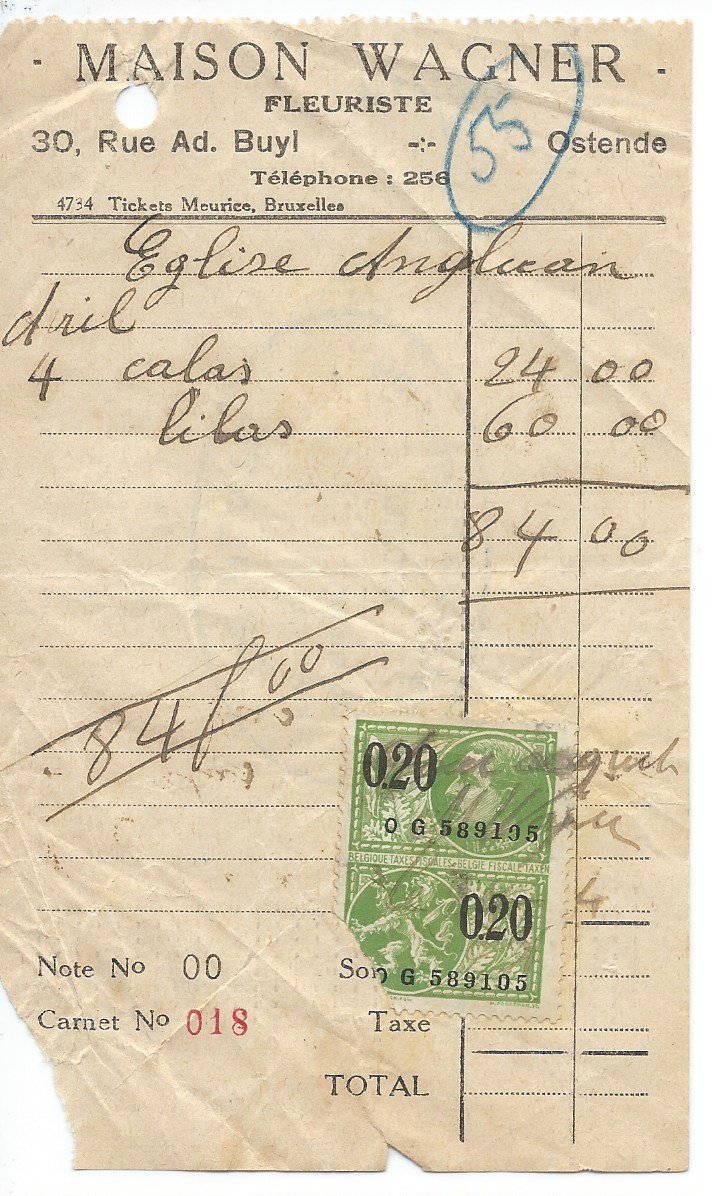 - MAISON WAGNER -
FLEURISTE
30, Rue Ad. Buyl -:- Ostende
55
Téléphone : 256
4734 Tickets Meurice, Bruxelles
Eglise Anglican
Avril
4 calas 24 00
lilas 60 00
84 00
84 00
0.20
O G 589105
BELGIQUE TAXES FISCALES - BELGIE FISCALE TAXEN
0.20
G 589105
Note No 00
Carnet No 018 Taxe
TOTAL